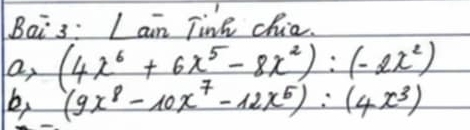 Bài 3: Làm Tính chia.
a, (4x⁶ + 6x⁵ - 8x²) : (-2x²)
b, (9x⁸ - 10x⁷ - 12x⁵) : (4x³)